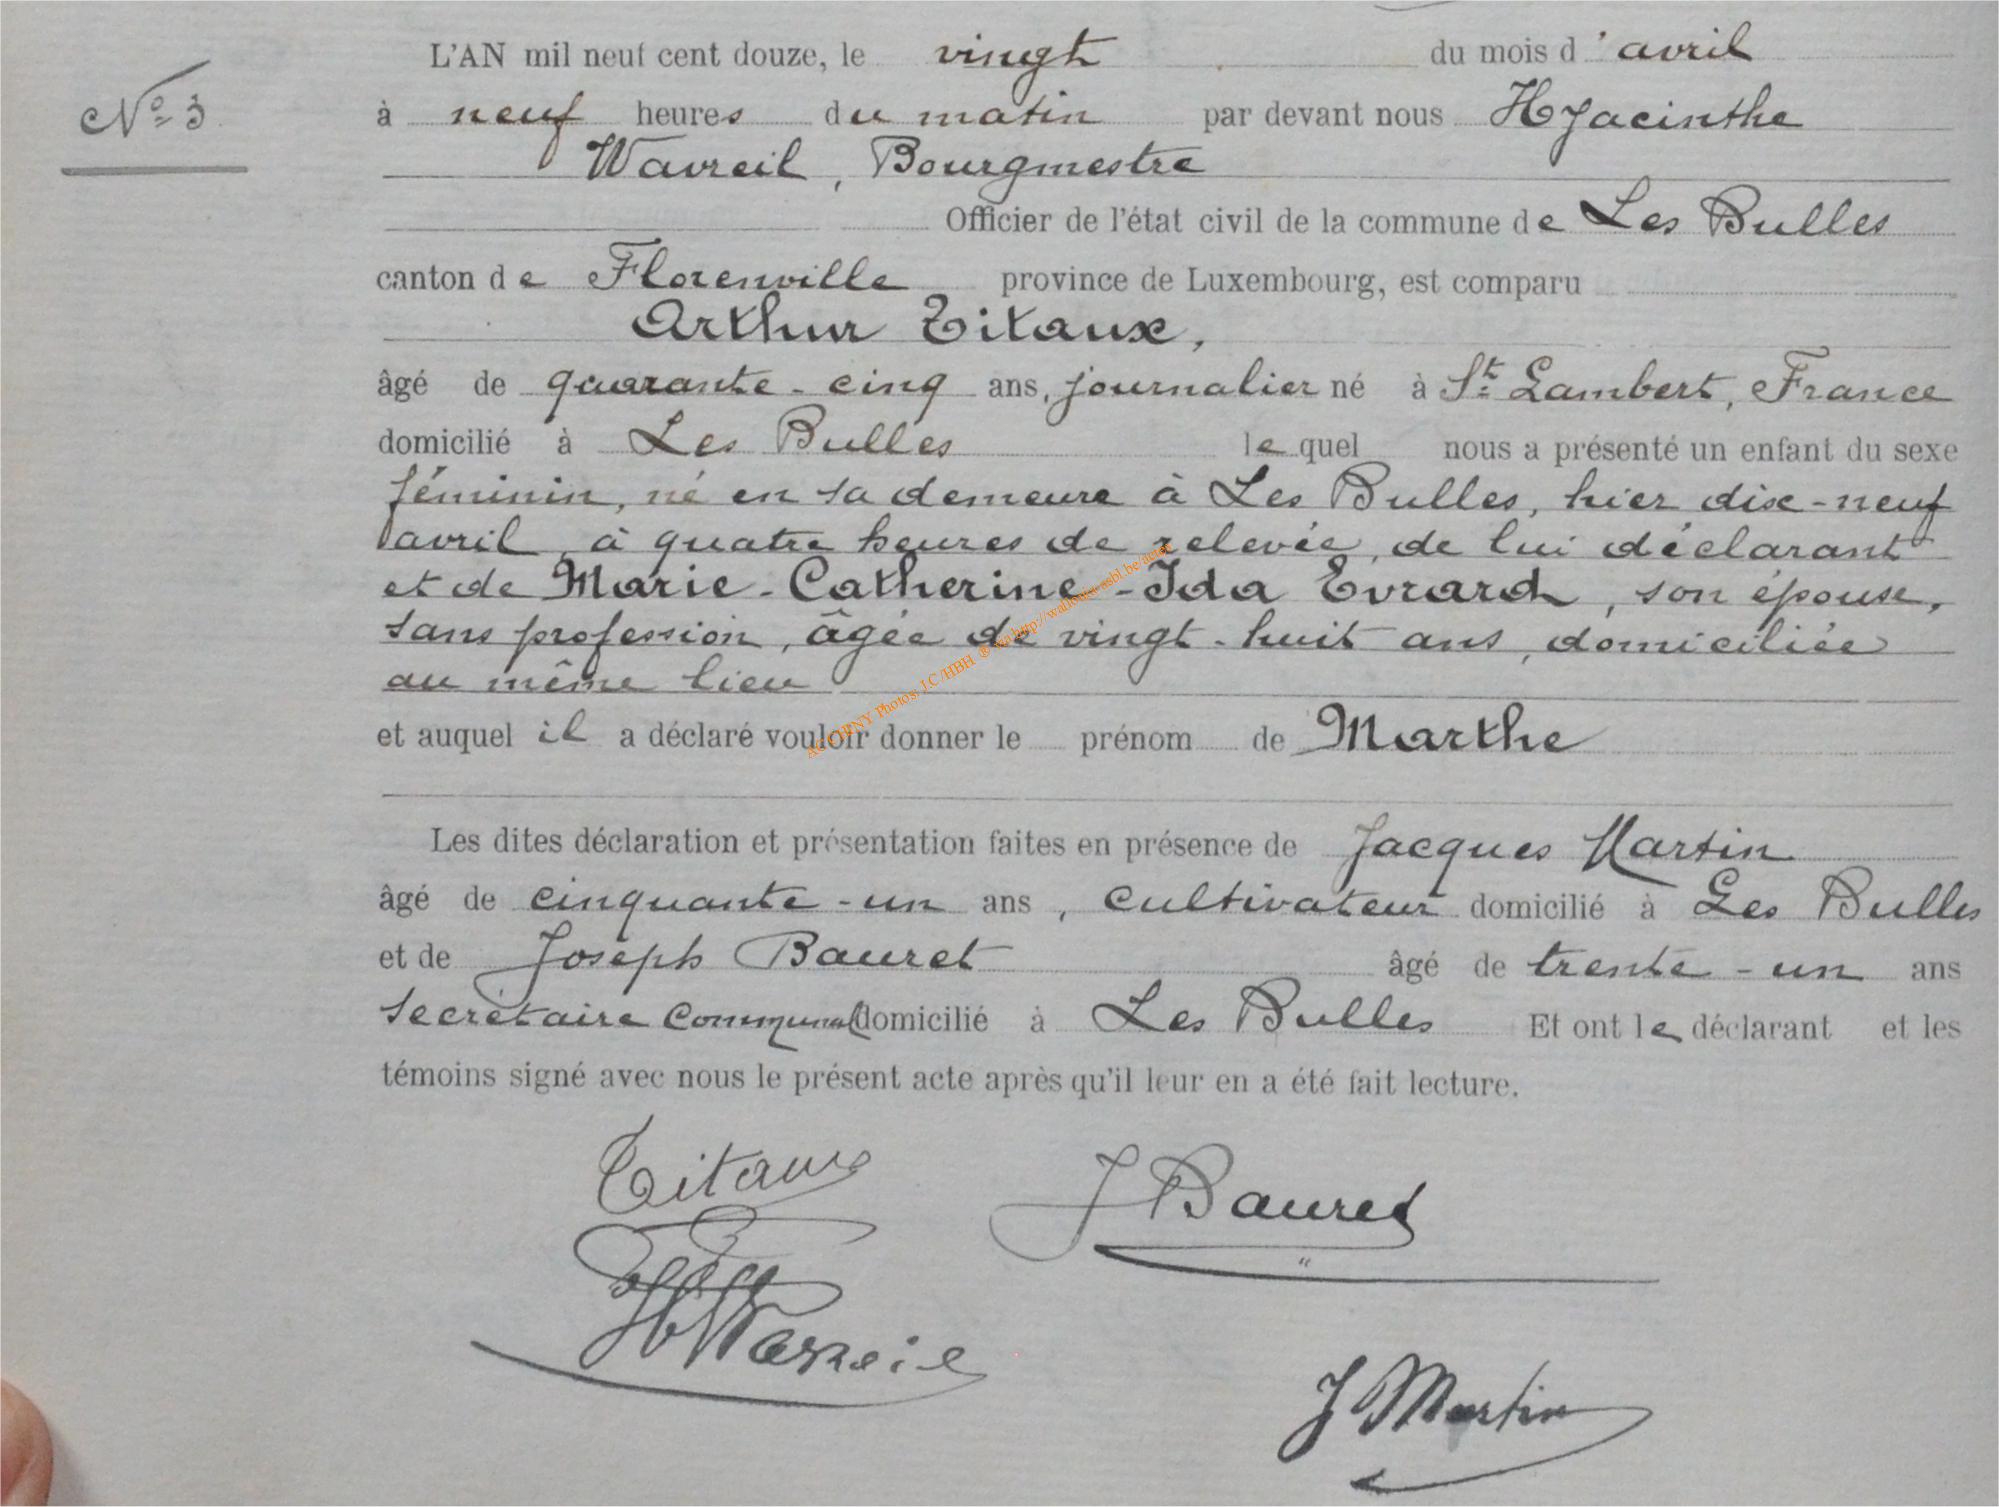 L'AN mil neuf cent douze, le vingt du mois d'avril
N° 3
à neuf heures du matin par devant nous Hyacinthe
Wavreil, Bourgmestre
Officier de l'état civil de la commune de Les Bulles
canton de Florenville province de Luxembourg, est comparu
Arthur Titaux,
âgé de quarante-cinq ans, journalier né à St Lambert, France
domicilié à Les Bulles lequel nous a présenté un enfant du sexe
féminin, né en sa demeure à Les Bulles, hier dix-neuf
avril, à quatre heures de relevée, de lui déclarant
et de Marie-Catherine-Ida Evrard, son épouse,
sans profession, âgée de vingt-huit ans, domiciliée
au même lieu
et auquel il a déclaré vouloir donner le prénom de Marthe
ACCHRNY Photos: J.C/HBH ® via http://wallonia-asbl.be/actes
Les dites déclaration et présentation faites en présence de Jacques Martin
âgé de cinquante-un ans, cultivateur domicilié à Les Bulles
et de Joseph Bauret âgé de trente-un ans
secrétaire communal domicilié à Les Bulles Et ont le déclarant et les
témoins signé avec nous le présent acte après qu'il leur en a été fait lecture.
Titaux
J Bauret
H Wavreil
J Martin